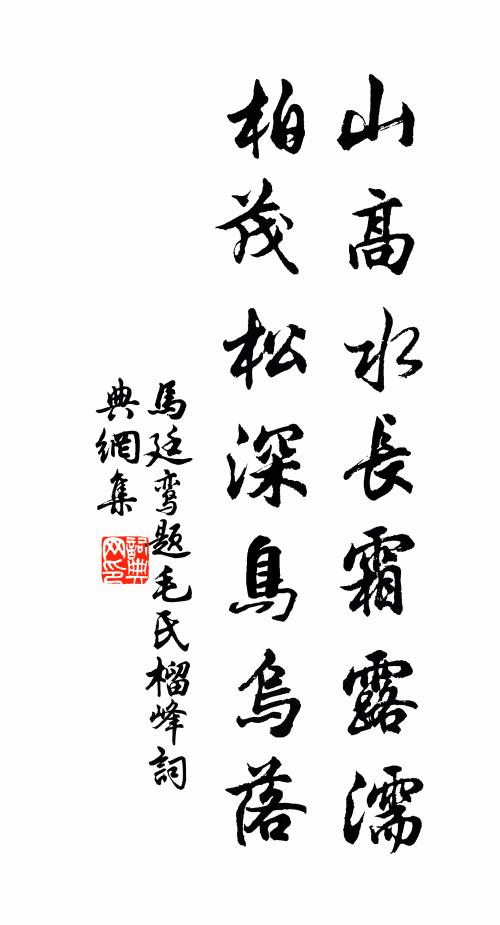 山高水長霜露濡
柏茂松深鳥烏落
馬廷鸞題毛氏榴峰詞
典網集
詞典
网印